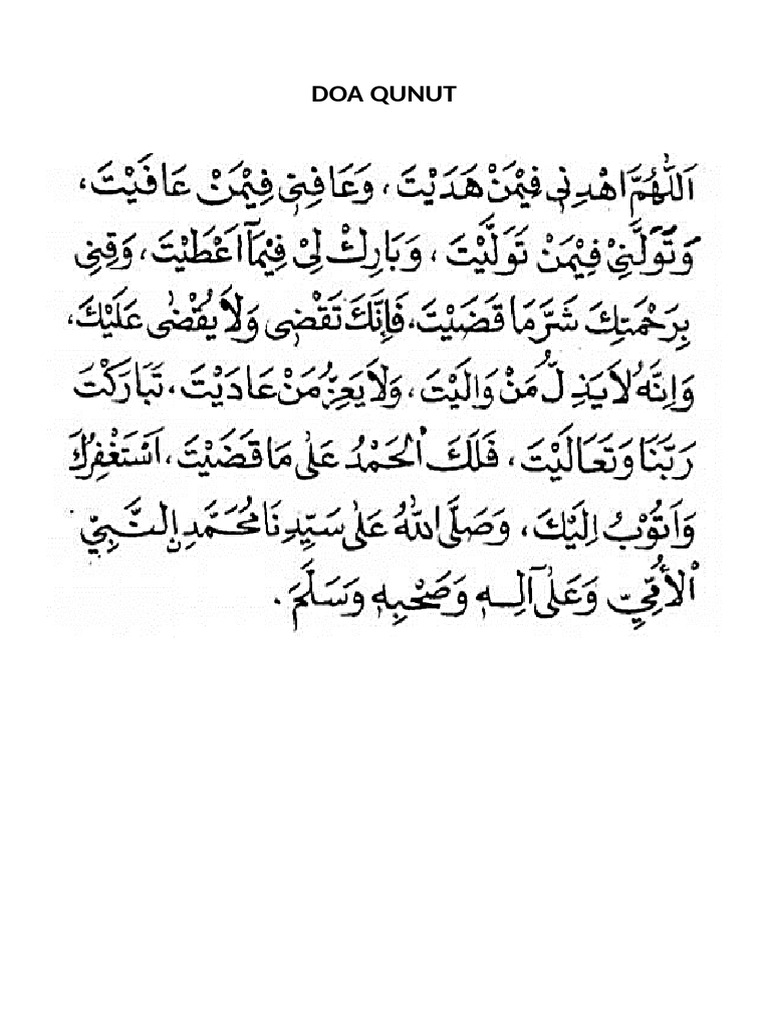 DOA QUNUT
اَللّٰهُمَّ اهْدِنِيْ فِيْمَنْ هَدَيْتَ، وَعَافِنِيْ فِيْمَنْ عَافَيْتَ،
وَتَوَلَّنِيْ فِيْمَنْ تَوَلَّيْتَ، وَبَارِكْ لِيْ فِيْمَآ اَعْطَيْتَ، وَقِنِيْ
بِرَحْمَتِكَ شَرَّ مَا قَضَيْتَ، فَاِنَّكَ تَقْضِيْ وَلَا يُقْضٰى عَلَيْكَ،
وَاِنَّهُ لَا يَذِلُّ مَنْ وَالَيْتَ، وَلَا يَعِزُّ مَنْ عَادَيْتَ، تَبَارَكْتَ
رَبَّنَا وَتَعَالَيْتَ، فَلَكَ الْحَمْدُ عَلٰى مَا قَضَيْتَ، اَسْتَغْفِرُكَ
وَاَتُوْبُ اِلَيْكَ، وَصَلَّى اللّٰهُ عَلٰى سَيِّدِنَا مُحَمَّدِ اِلنَّبِيِّ
الْأُمِّيِّ وَعَلٰى آلِهِ وَصَحْبِهِ وَسَلَّمَ.